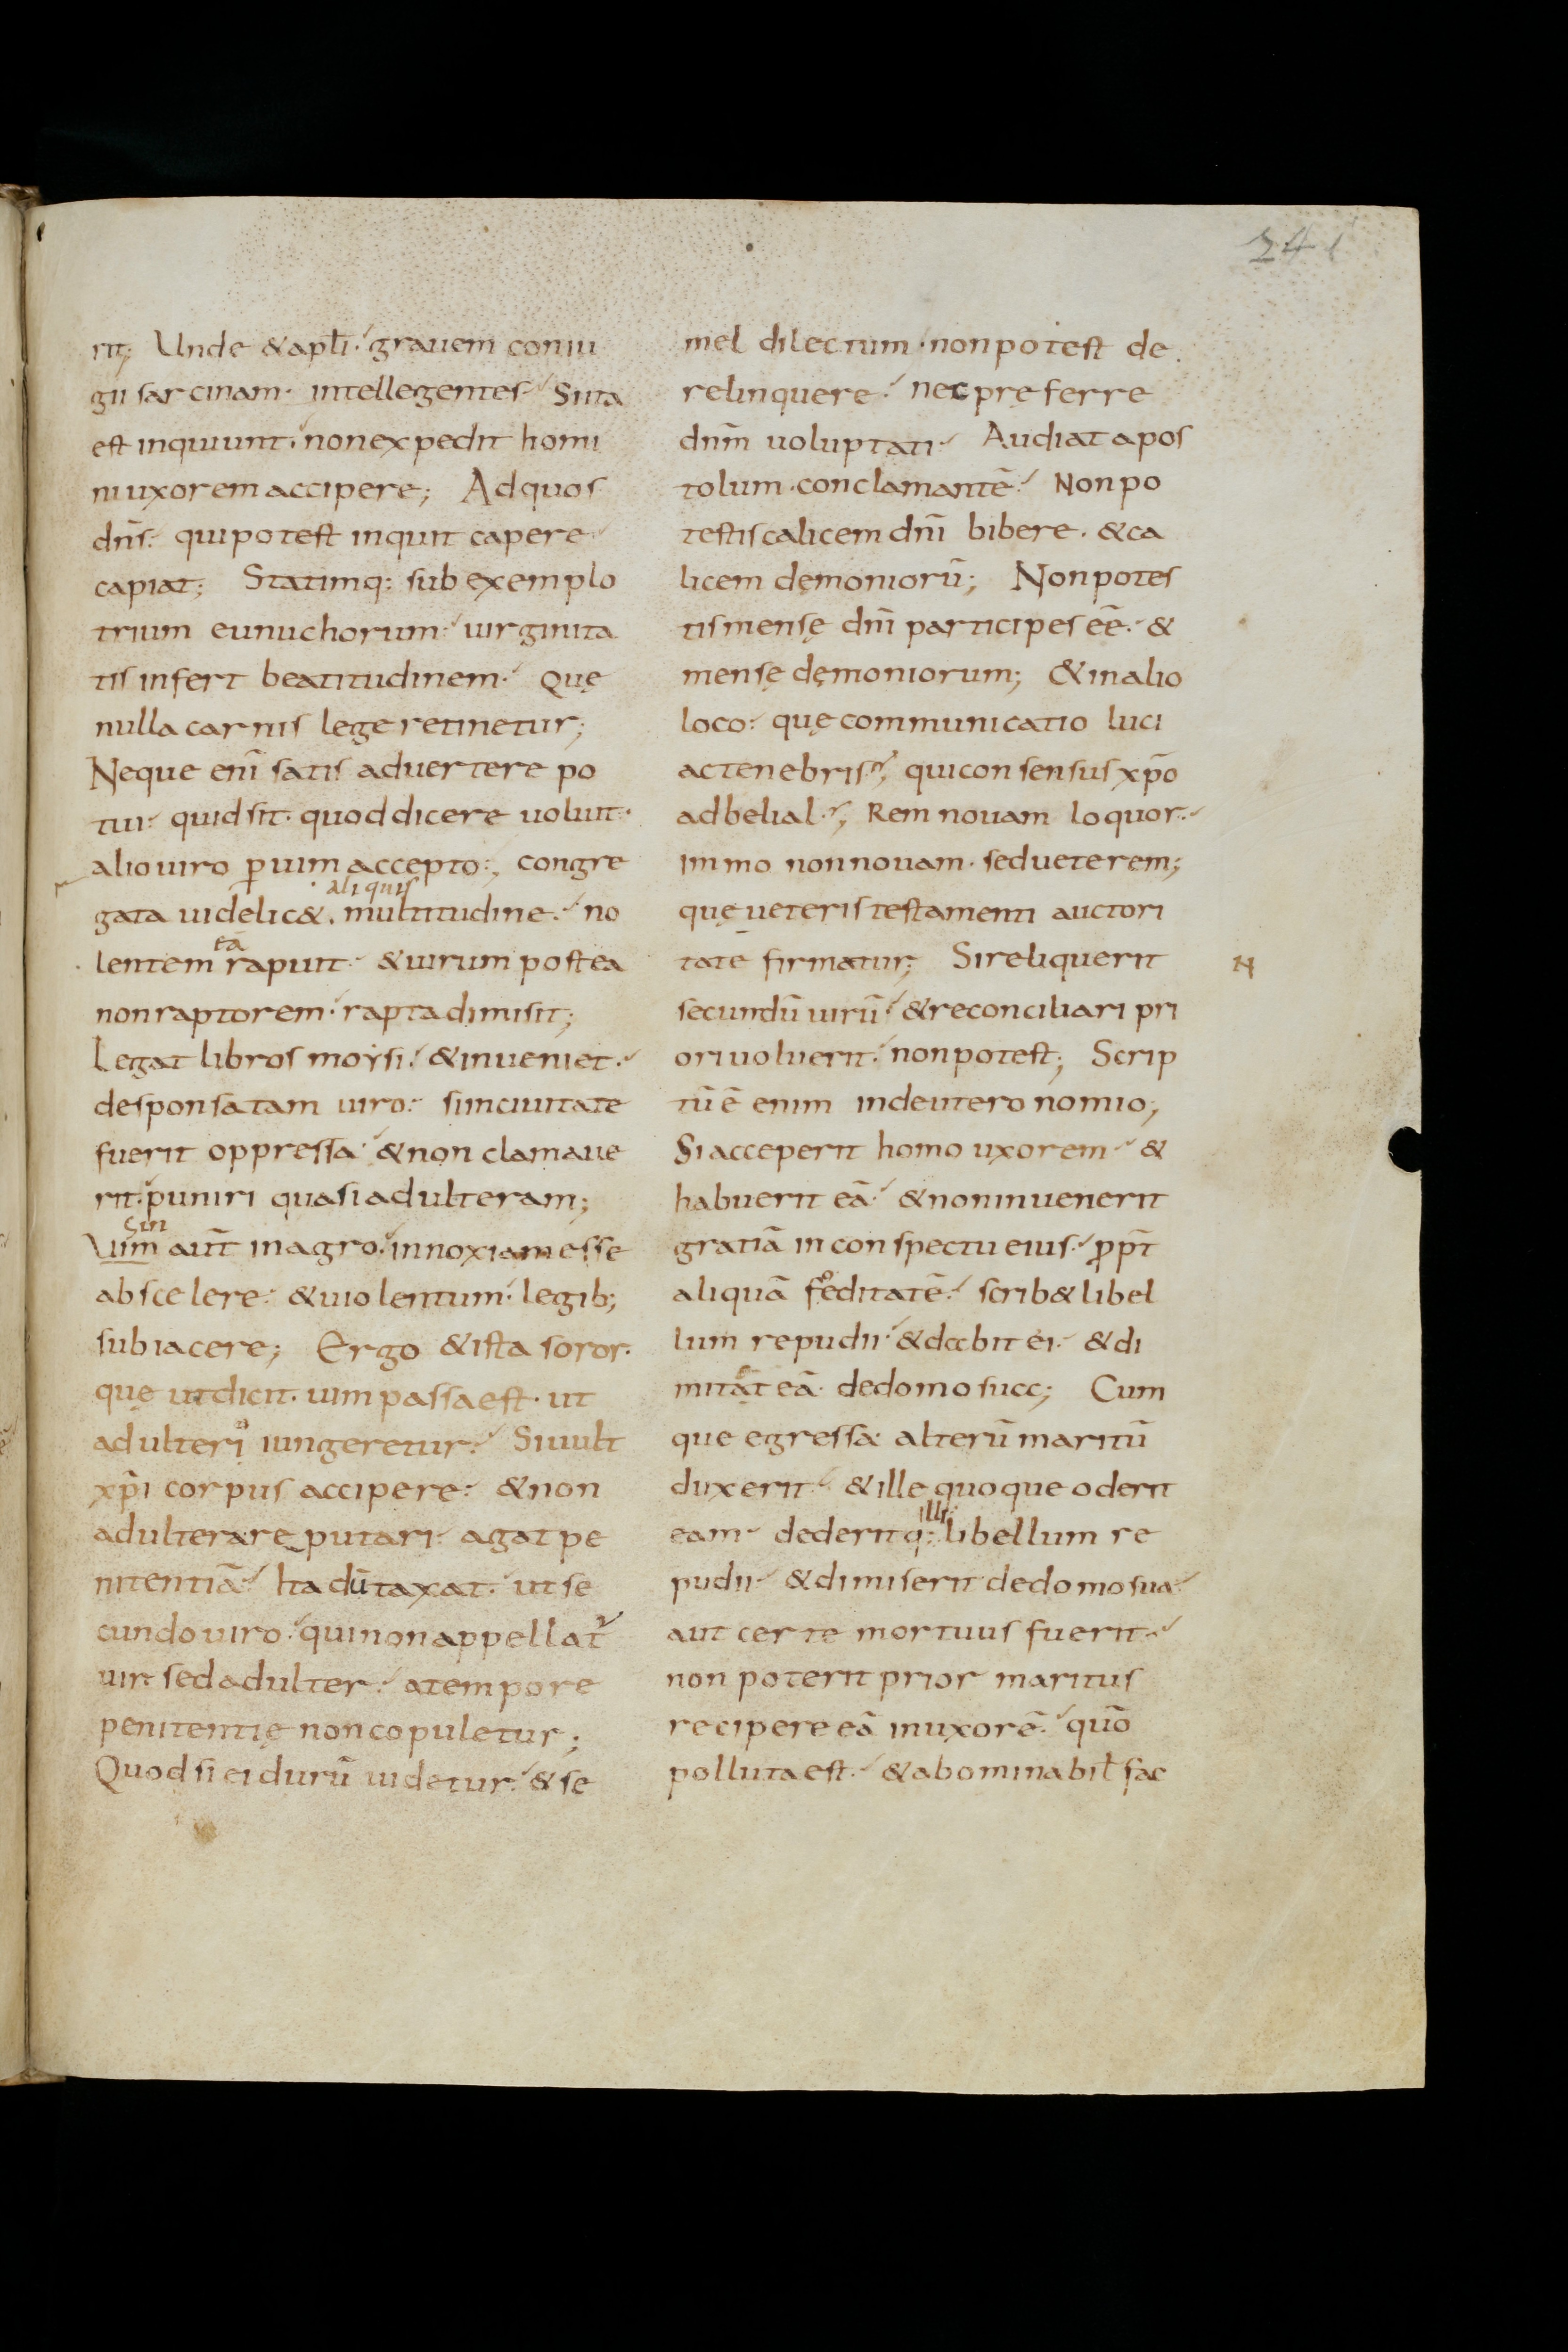 241
rit; Unde & apłi· grauem coniu
gii sarcinam· intellegentes· Si ita
est inquiunt· non expedit homi
ni uxorem accipere; Ad quos
dn̄s· qui potest inquit capere
capiat; Statimq: sub exemplo
trium eunuchorum· uirginita
tis infert beatitudinem· Quę
nulla carnis lege retinetur;
Neque enī satis aduertere po
tui· quid sit· quod dicere uoluit·
alio uiro p̱ uim accepto; congre
aliquis
gata uidelic&· multitudine· no
eā
lentem rapuit· & uirum postea
non raptorem· rapta dimisit;
Legat libros moẏsi· & inueniet·
desponsatam uiro· si in ciuitate
fuerit oppressa· & non clamaue
rit· puniri quasi adulteram;
Sin
Uim aut̄ in agro· innoxiam esse
ab scelere· & uiolentum· legib;
subiacere; Ergo & ista soror·
quę ut dicit· uim passa est· ut
adulteri iungeretur· Si uult
xp̄i corpus accipere· & non
adulterare putari· agat pe
nitentiā· Ita dūtaxat· ut se
cundo uiro· qui non appellat̄
uir· sed adulter· a tempore
penitentię non copuletur;
Quod si ei durū uidetur· & se
mel dilectum· non potest de
relinquere· nec pręferre
dnm̄ uoluptati· Audiat apos
tolum· conclamantē· Non po
testis calicem dnī bibere· & ca
licem dęmoniorū; Non potes
tis mensę dnī participes eē· &
mensę dęmoniorum; & in alio
loco· quę communicatio luci
ac tenebris; qui consensus xp̄o
ad belial; Rem nouam loquor·
immo non nouam· sed ueterem;
quę ueteris testamenti auctori
tate firmatur; Si reliquerit
N
secundū uirū· & reconciliari pri
ori uoluerit· non potest; Scrip
tū ē enim in deuteronomio;
Si acceperit homo uxorem· &
habuerit eā· & non inuenerit
gratiā in conspectu eius· p̱pt̄
aliquā foeditatē· scrib& libel
lum repudii· & dabit ei· & di
mitat eā· de domo sua; Cum
que egressa· alterū maritū
duxerit· & ille quoque oderit
illi
eam· dederitq: libellum re
pudii· & dimiserit de domo sua·
aut certe mortuus fuerit·
non poterit prior maritus
recipere eā in uxorē· quō
polluta est· & abominabił fac